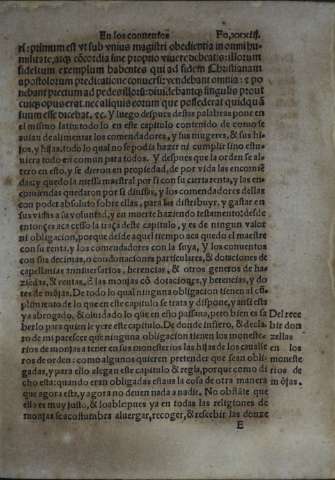 En los conuentos Fo. xxxiij.
rẽ: primum est vt sub vnius magistri obedientia in omni hu-
militate, atq; cõcordia sine proprio viuere debeatis: illorum
fidelium exemplum habentes qui ad fidem Christianam
apostolorum predicatione conuersi: vendebant omnia: & po
nebant precium ad pedes illorũ: diuidebantq; singulis prout
cuiq; opus erat. nec aliquis eorum que possederat quidquã
suum esse dicebat. &c. Y luego despues destas palabras pone en
el mismo latin todo lo en este capitulo contenido de como se
auian de alimentar los comendadores, y sus mugeres, & sus hi
jos, y hijas, todo lo qual no se podia hazer ni cumplir sino estu-
uiera todo en comun para todos. Y despues que la orden se al-
tero en esto, y se dieron en propiedad, de por vida las encomiē
das: y quedo la mesa maestral por si con su cierta renta, y las en
comiendas quedaron por si diuisas, y los comendadores dellas
con poder absoluto sobre ellas, para las distribuyr, y gastar en
sus vidas a su voluntad, y en muerte haziendo testamento: desde
entonçes aca cesso la traça deste capitulo, y es de ningun valor
ni obligacion, porque desde aquel tiempo aca quedo el maestre
con su renta, y los comendadores con la suya, Y los conuentos
con sus decimas, o condonaciones particulares, & dotaciones de
capellanias anniuersarios, herencias, & otros generos de ha-
ziẽdas, & rentas, E las monjas cõ dotaciones, y herencias, y do
tes de mõjas. De todo lo qual ninguna obligacion tienen al cũ-
plimiento de lo que en este capitulo se trata y dispone, y ansi esta
ya abrogado, & oluidado lo que en ello passaua, pero bien es sa
berlo para quien leyere este capitulo. De donde infiero, & decla-
ro de mi parescer que ninguna obligacion tienen los moneste-
rios de monjas a tener en los monesterios las hijas de los caualle
ros de orden: como algunos quieren pretender que sean obli-
gadas, y para ello alegan este capitulo & regla, porque como di
cho esta: quando eran obligadas estaua la cosa de otra manera
que agora esta, y agora no deuen nada a nadie. No obstãte que
ello es muy justo, & loable pues ya en todas las religiones de
monjas se acostumbra aluergar, recoger, & rescebir las donze
E
Del rece
bir don
zellas
en los
moneste
rios de
mõjas.